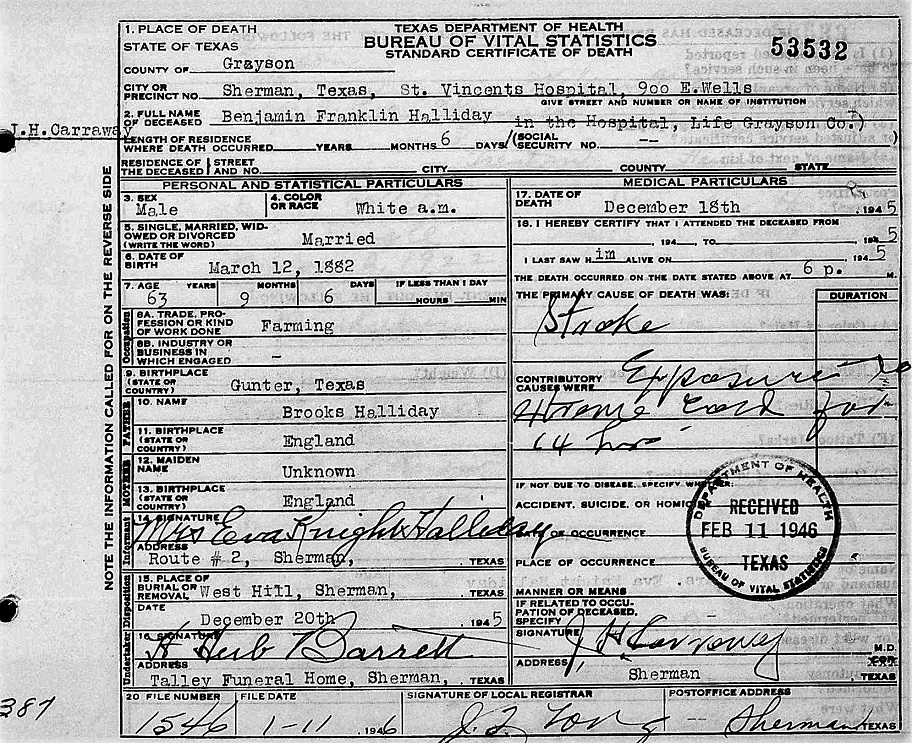 1. PLACE OF DEATH
STATE OF TEXAS
TEXAS DEPARTMENT OF HEALTH
BUREAU OF VITAL STATISTICS
STANDARD CERTIFICATE OF DEATH
53532
COUNTY OF Grayson
CITY OR PRECINCT NO. Sherman, Texas, St. Vincents Hospital, 900 E.Wells
GIVE STREET AND NUMBER OR NAME OF INSTITUTION
2. FULL NAME OF DECEASED Benjamin Franklin Halliday in the Hospital, Life Grayson Co.)
J.H.Carraway
LENGTH OF RESIDENCE WHERE DEATH OCCURRED YEARS MONTHS 6 DAYS (SOCIAL SECURITY NO. --
RESIDENCE OF THE DECEASED STREET AND NO. CITY COUNTY STATE
NOTE THE INFORMATION CALLED FOR ON THE REVERSE SIDE
PERSONAL AND STATISTICAL PARTICULARS
3. SEX Male
4. COLOR OR RACE White a.m.
5. SINGLE, MARRIED, WIDOWED OR DIVORCED (WRITE THE WORD) Married
6. DATE OF BIRTH March 12, 1882
7. AGE YEARS MONTHS DAYS IF LESS THAN 1 DAY
63 9 6 HOURS MIN
Occupation
8A. TRADE, PROFESSION OR KIND OF WORK DONE Farming
8B. INDUSTRY OR BUSINESS IN WHICH ENGAGED -
9. BIRTHPLACE (STATE OR COUNTRY) Gunter, Texas
FATHER
10. NAME Brooks Halliday
11. BIRTHPLACE (STATE OR COUNTRY) England
MOTHER
12. MAIDEN NAME Unknown
13. BIRTHPLACE (STATE OR COUNTRY) England
Informant
14. SIGNATURE Mrs Eva Knight Halliday
ADDRESS Route # 2, Sherman, TEXAS
Disposition
15. PLACE OF BURIAL OR REMOVAL West Hill, Sherman, TEXAS
DATE December 20th 1945
Undertaker
16. SIGNATURE H Herb Barrett
ADDRESS Talley Funeral Home, Sherman, TEXAS
MEDICAL PARTICULARS
17. DATE OF DEATH December 18th , 1945
18. I HEREBY CERTIFY THAT I ATTENDED THE DECEASED FROM
, 194 , TO , 1945
I LAST SAW H im ALIVE ON , 1945
THE DEATH OCCURRED ON THE DATE STATED ABOVE AT 6 p. M.
THE PRIMARY CAUSE OF DEATH WAS: DURATION
Stroke
CONTRIBUTORY CAUSES WERE Exposure to
Xtreme cold for
14 hrs
IF NOT DUE TO DISEASE, SPECIFY WHETHER:
ACCIDENT, SUICIDE, OR HOMIC
DATE OF OCCURRENCE
PLACE OF OCCURRENCE
MANNER OR MEANS
DEPARTMENT OF HEALTH
RECEIVED
FEB 11 1946
TEXAS
BUREAU OF VITAL STATISTICS
IF RELATED TO OCCUPATION OF DECEASED, SPECIFY
SIGNATURE J H Carraway M.D.
ADDRESS Sherman TEXAS
20 FILE NUMBER FILE DATE SIGNATURE OF LOCAL REGISTRAR POSTOFFICE ADDRESS
1546 1-11 1946 J. Z. Long Sherman TEXAS
387